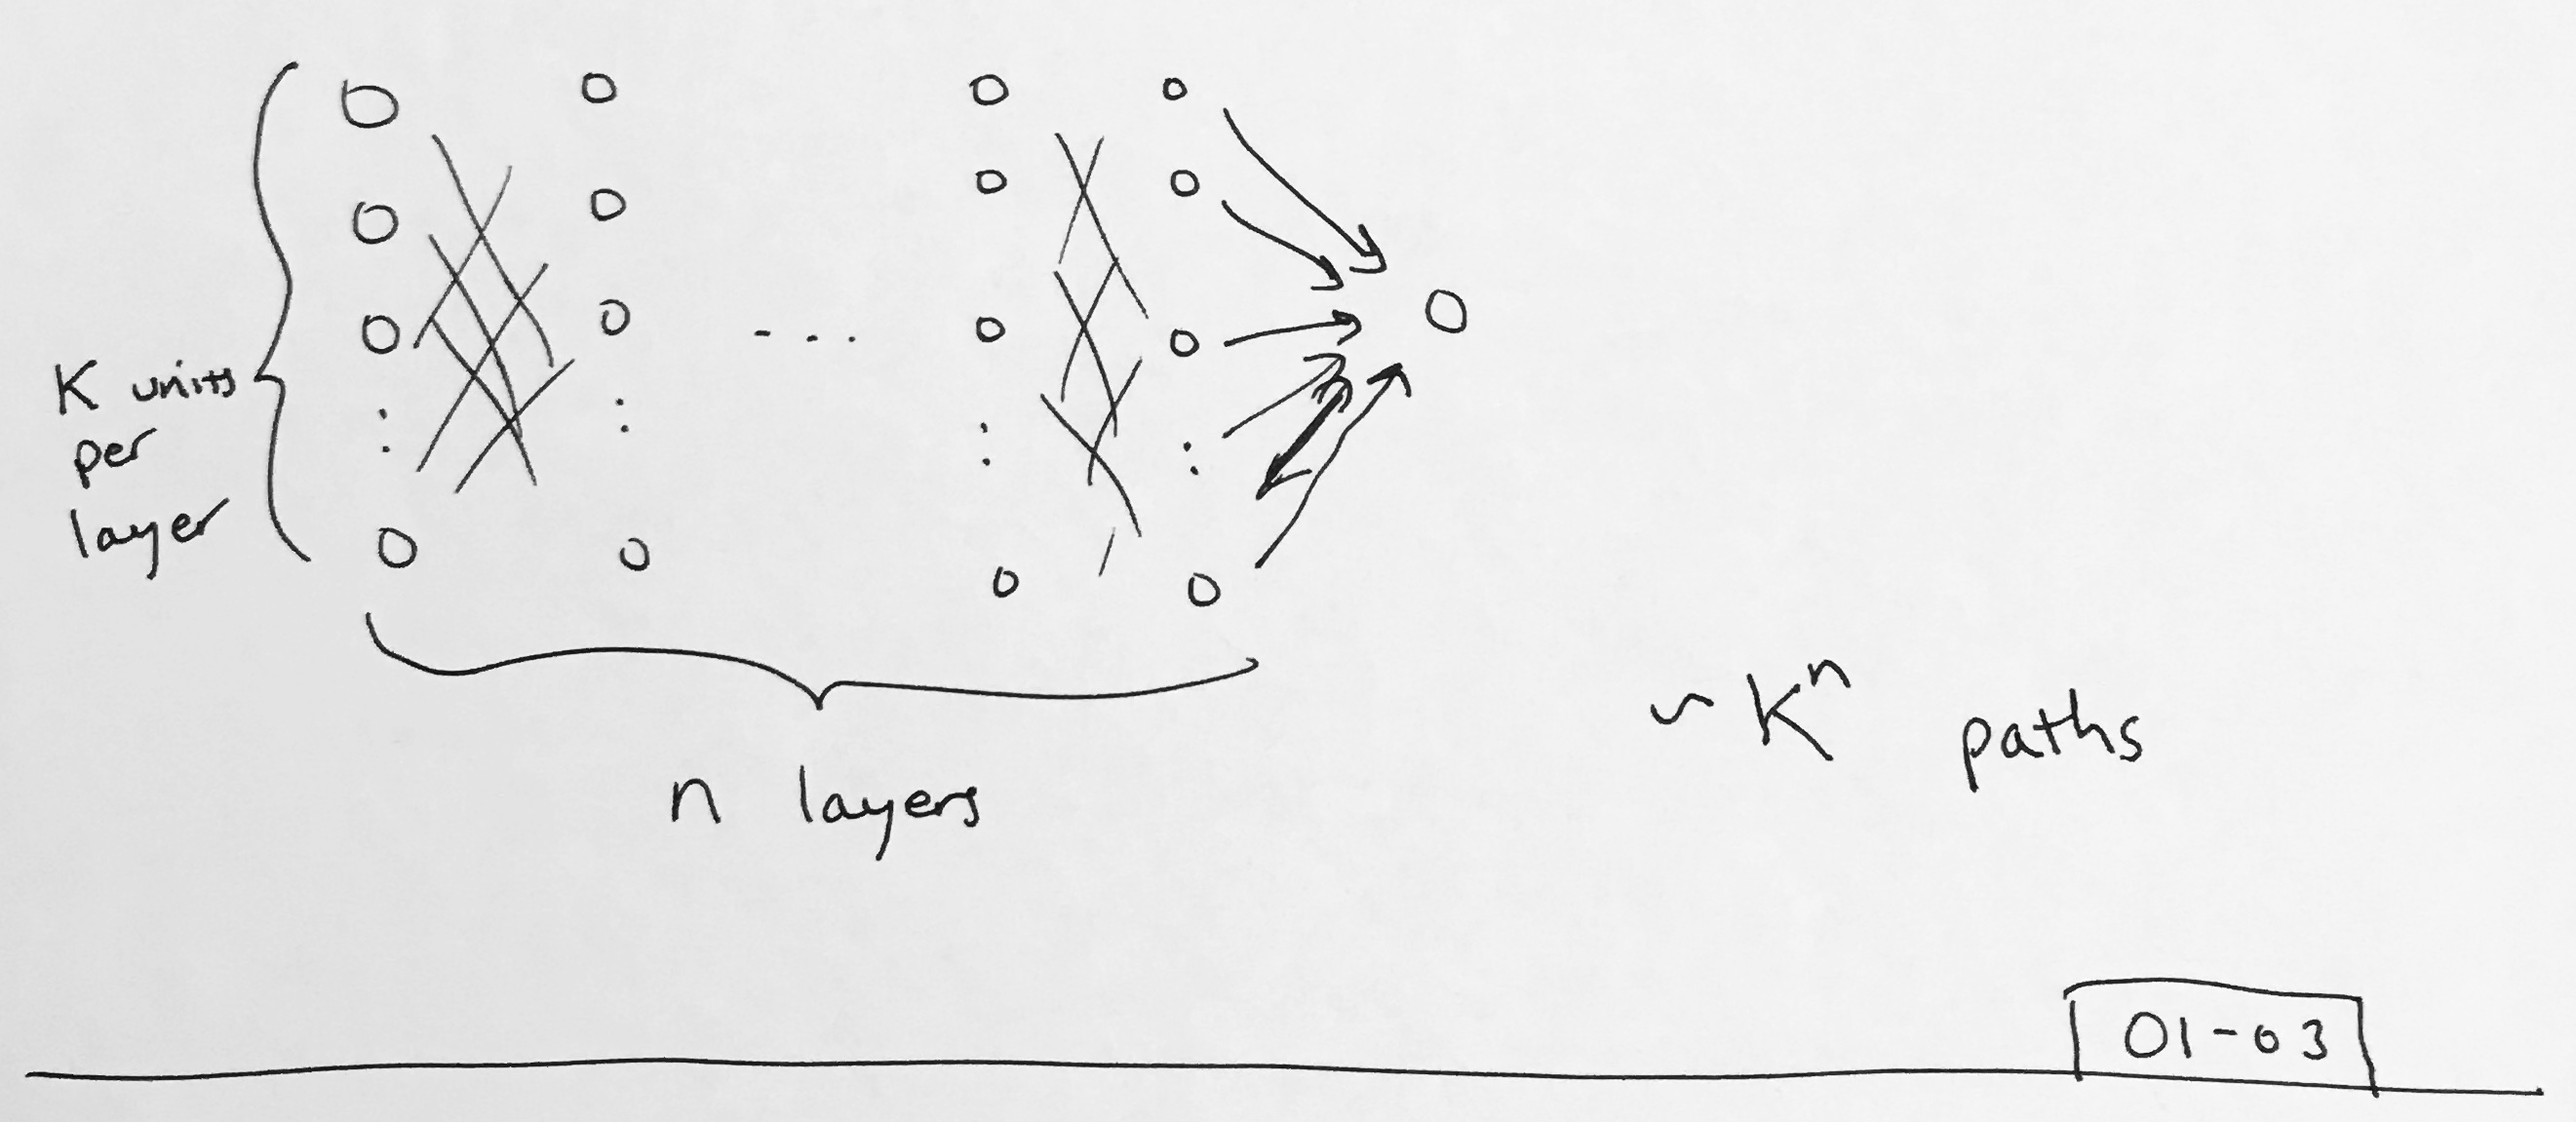 K units
per
layer
n layers
~ K^n paths
01-03